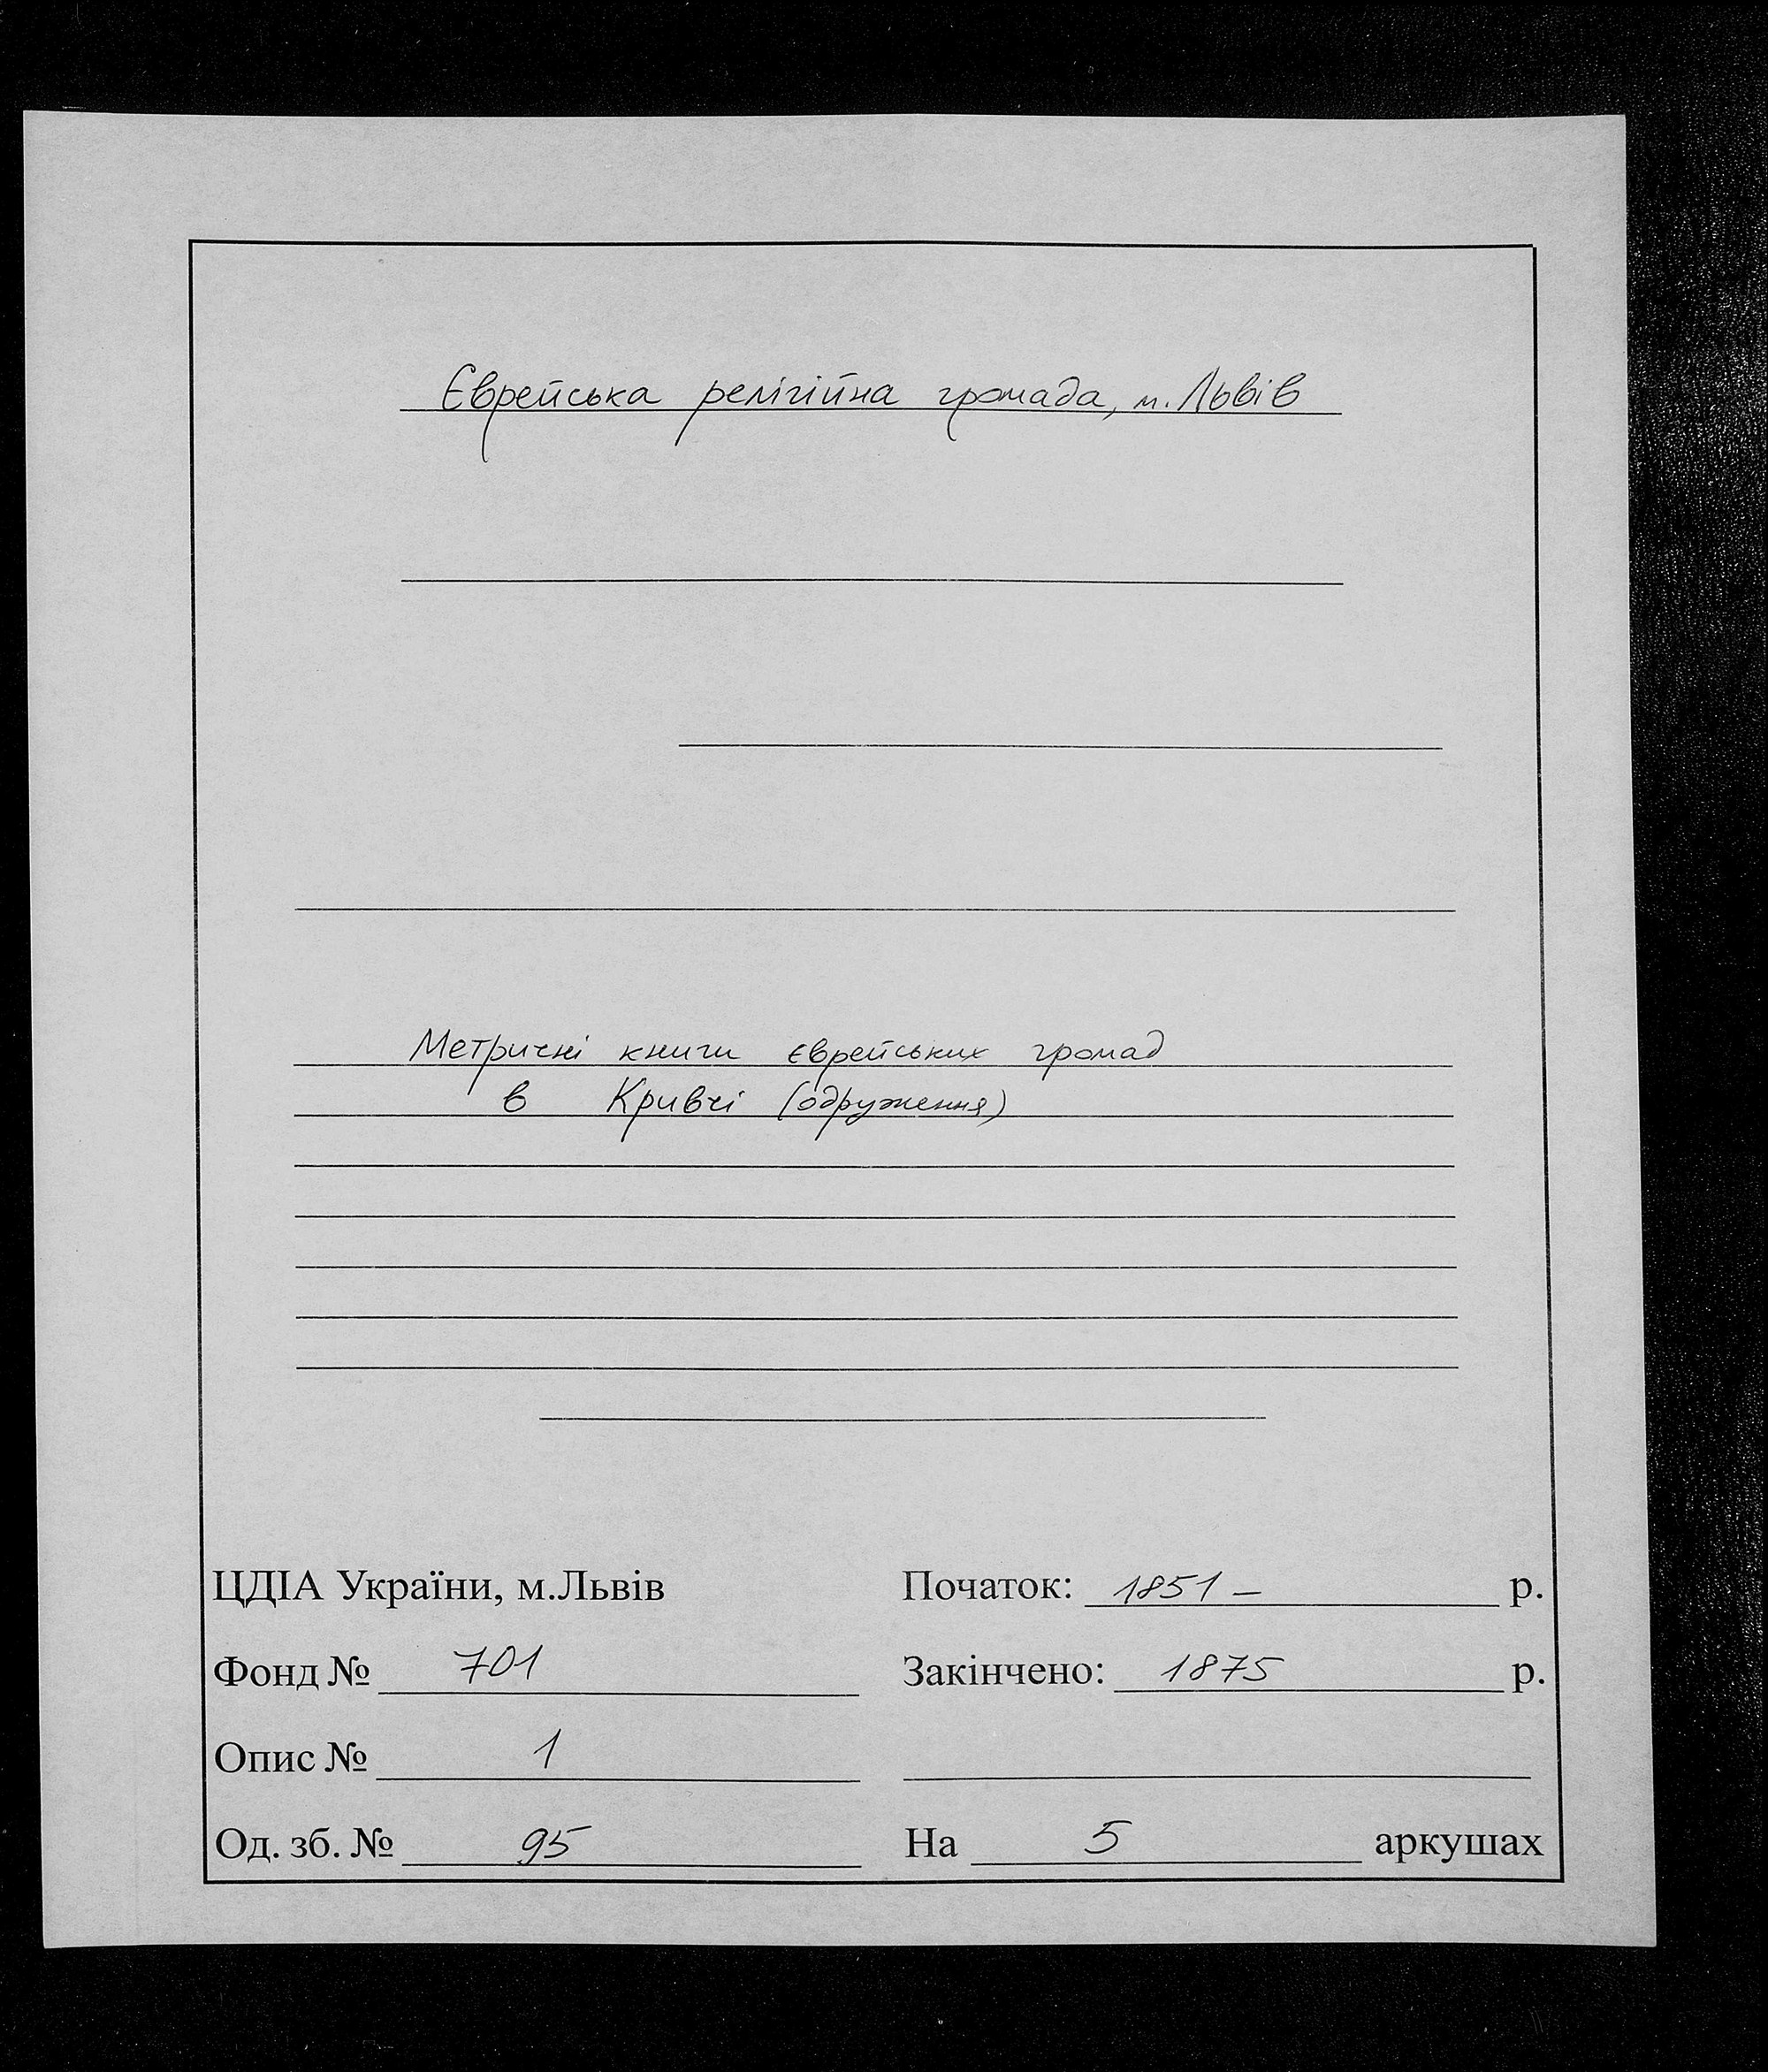 Єврейська релігійна громада, м. Львів
Метричні книги єврейських громад
в Кривчі (одруження)
ЦДІА України, м.Львів
Початок: 1851 – р.
Фонд № 701
Закінчено: 1875 р.
Опис № 1
Од. зб. № 95
На 5 аркушах